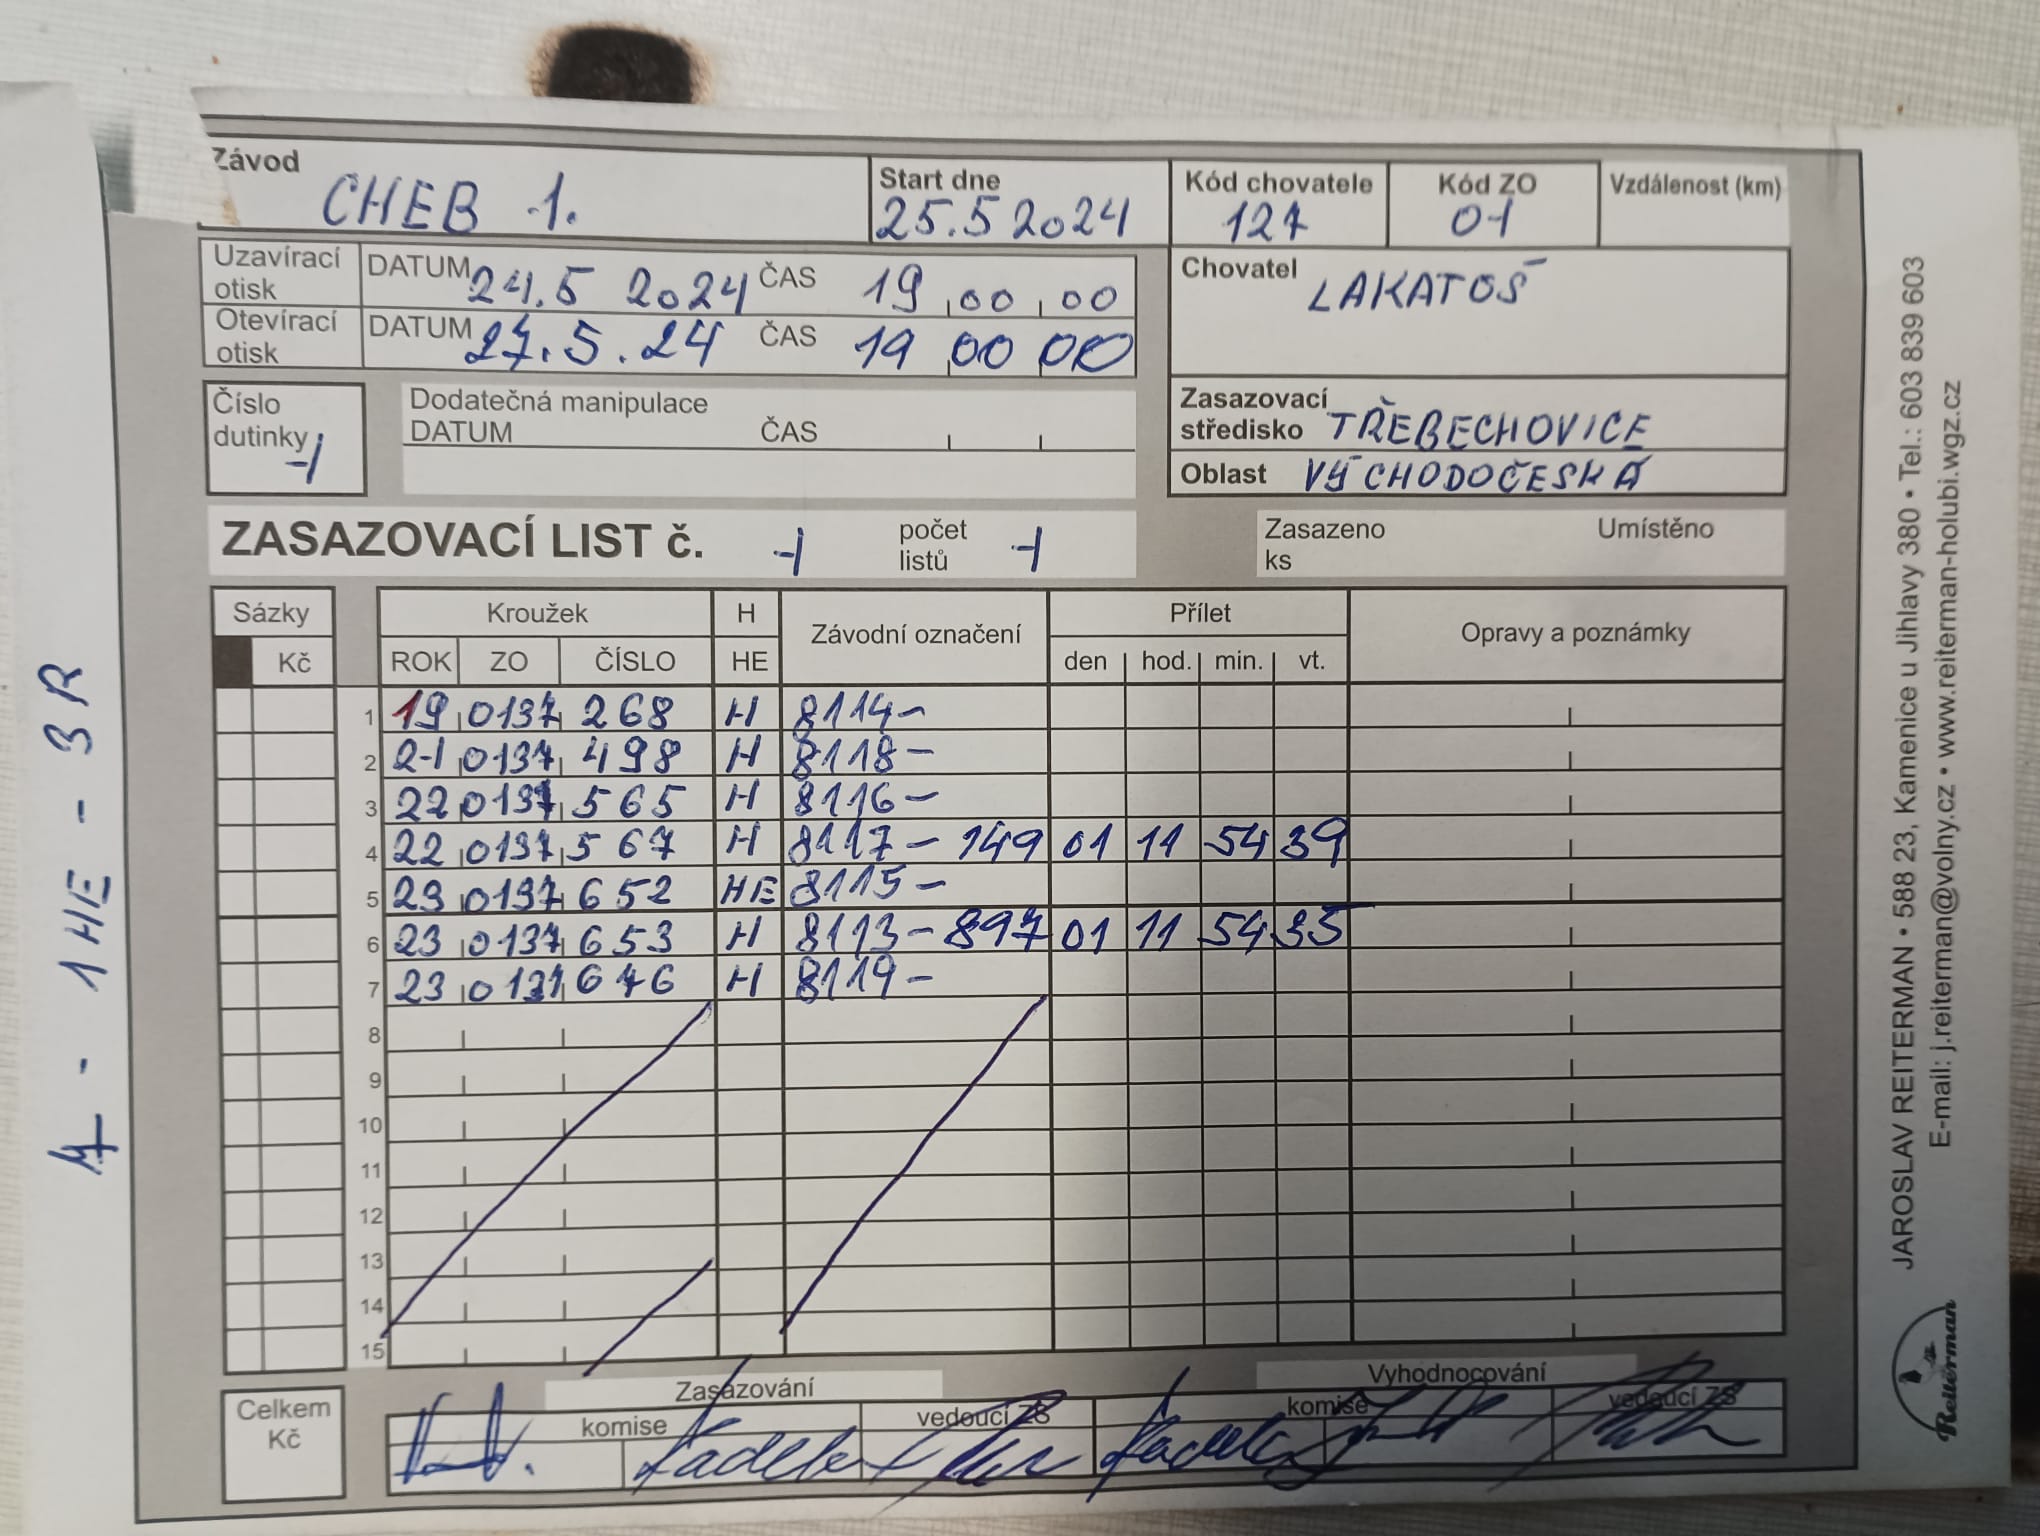 Závod CHEB 1. Start dne 25.5 2024 Kód chovatele 127 Kód ZO 01 Vzdálenost (km)
Uzavírací otisk DATUM 24.5 2024 ČAS 19 00 00
Otevírací otisk DATUM 27.5.24 ČAS 19 00 00
Chovatel LAKATOŠ
Číslo dutinky 1
Dodatečná manipulace
DATUM ČAS
Zasazovací středisko TŘEBECHOVICE
Oblast VÝCHODOČESKÁ
ZASAZOVACÍ LIST č. 1 počet listů 1
Zasazeno ks Umístěno
Sázky Kroužek H Závodní označení Přílet Opravy a poznámky
Kč ROK ZO ČÍSLO HE den hod. min. vt.
1 19 0137 268 H 8114-
2 21 0137 498 H 8118-
3 22 0137 565 H 8116-
4 22 0137 567 H 8117- 149 01 11 54 39
5 23 0137 652 HE 8115-
6 23 0137 653 H 8113- 897 01 11 54 35
7 23 0137 676 H 8119-
8
9
10
11
12
13
14
15
Celkem Kč
Zasazování Vyhodnocování
komise vedoucí ZS komise vedoucí ZS
7 - 1HE - 3R
JAROSLAV REITERMAN • 588 23, Kamenice u Jihlavy 380 • Tel.: 603 839 603
E-mail: j.reiterman@volny.cz • www.reiterman-holubi.wgz.cz
Reiterman